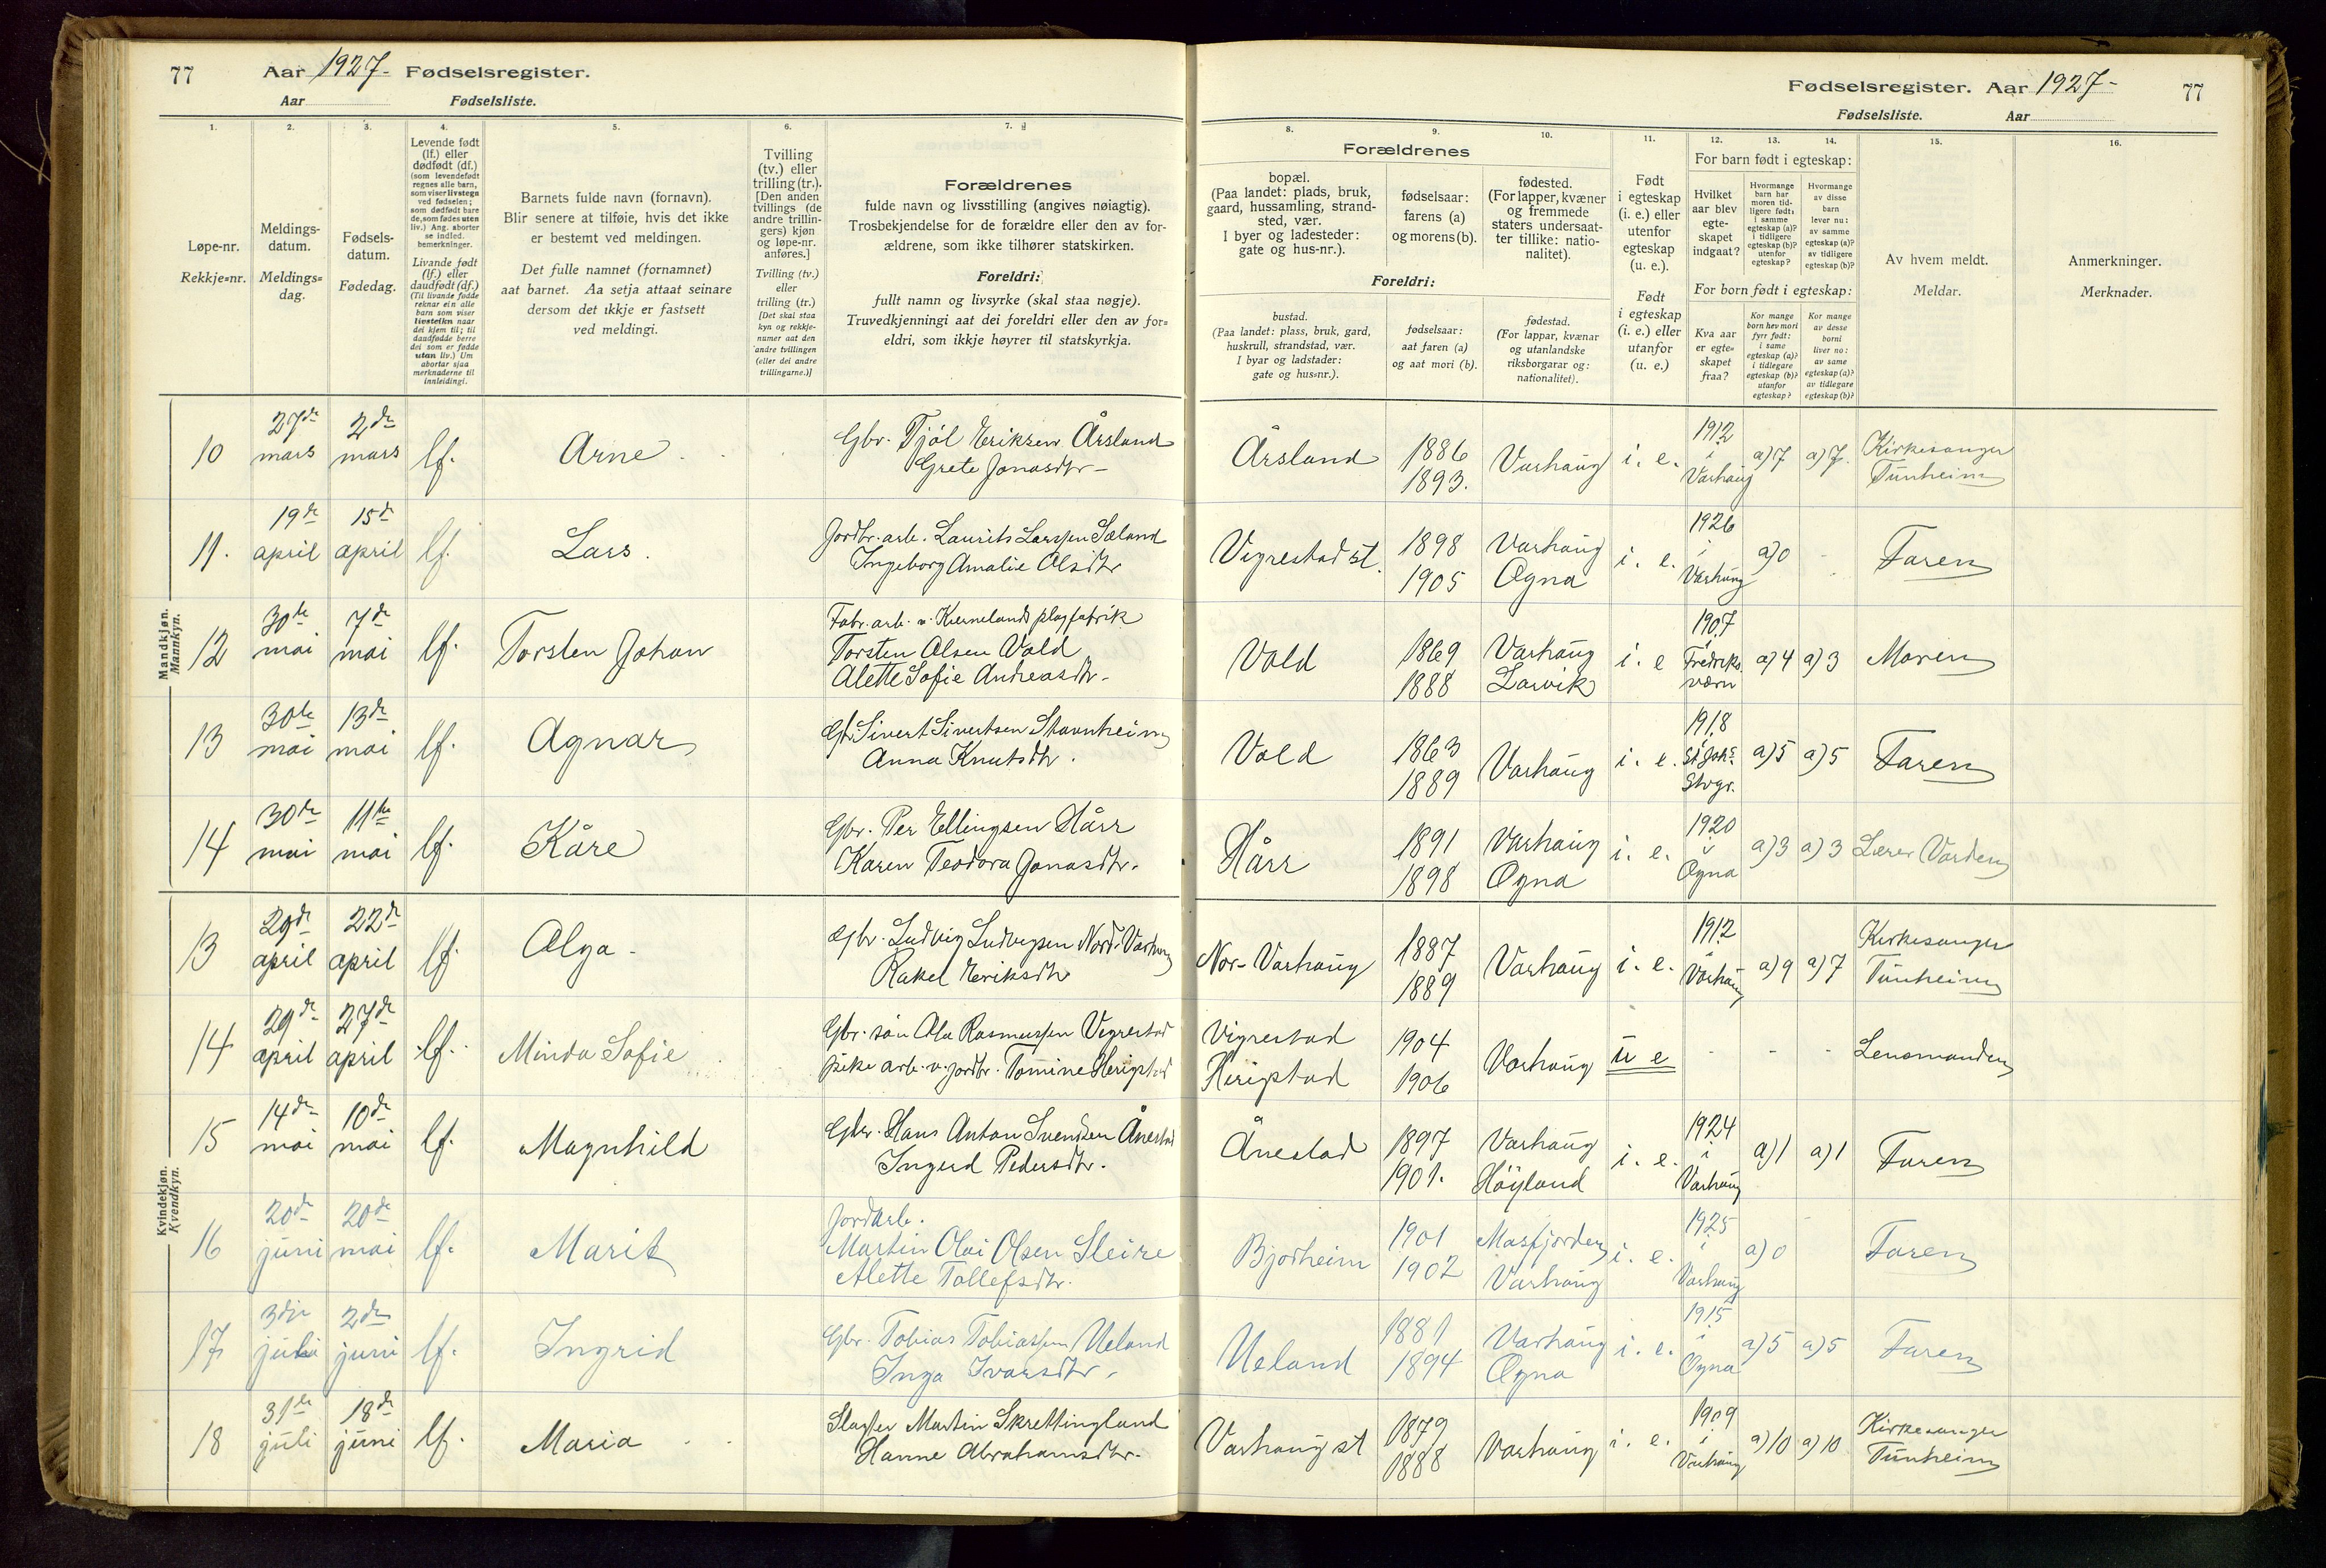 77 Aar 1927- Fødselsregister.
Aar Fødselsliste.
1.
Løpe-nr.
Rekkje=nr.
2.
Meldings-
datum.
Meldings=
dag.
3.
Fødsels-
datum.
Fødedag.
4.
Levende født
(lf.) eller
dødfødt (df.)
(som levendefødt
regnes alle barn,
som viser livstegn
ved fødselen;
som dødfødt bare
de, som fødes uten
liv.) Ang. aborter
se indled.
bemerkninger.
Livande født
(lf.) eller
daudfødt (df.)
(Til livande fødde
reknar ein alle
barn som viser
livsteikn naar
dei kjem til; til
daudfødde berre
dei som er fødde
utan liv.) Um
abortar sjaa
merknaderne til
innleidingi.
5.
Barnets fulde navn (fornavn).
Blir senere at tilføie, hvis det ikke
er bestemt ved meldingen.
Det fulle namnet (fornamnet)
aat barnet. Aa setja attaat seinare
dersom det ikkje er fastsett
ved meldingi.
6.
Tvilling
(tv.) eller
trilling (tr.).
[Den anden
tvillings (de
andre trillin-
gers) kjøn
og løpe-nr.
anføres.]
Tvilling (tv.)
eller
trilling (tr.)
[Det skal staa
kyn og rekkje-
numer aat den
andre tvillingen
(eller dei andre
trillingarne.)]
7.
Forældrenes
fulde navn og livsstilling (angives nøiagtig).
Trosbekjendelse for de forældre eller den av for-
ældrene, som ikke tilhører statskirken.
Foreldri:
fullt namn og livsyrke (skal staa nøgje).
Truvedkjenningi aat dei foreldri eller den av for=
eldri, som ikkje høyrer til statskyrkja.
Mandkjøn.
Mannkyn.
10 27de mars 2den mars lf. Arne Gbr. Tjøl Eriksen Årsland
Grete Jonasdtr-
11. 19de april 15de april lf. Lars. Jordbr. arb. Laurits Larssen Sæland
Ingeborg Amalie Olsdtr
12 30te mai 7de mai lf. Torsten Johan Fabr. arb. v. Kvernelands plogfabrik
Torsten Olsen Vold
Alette Sofie Andreasdtr-
13 30te mai 13de mai lf. Agnar Gbr. Sivert Sivertsen Stavnheim
Anna Knutsdtr.
14 30te mai 11te mai lf. Kåre Gbr. Per Ellingsen Hårr
Karen Teodora Jonasdtr.
Kvindekjøn.
Kvendkyn.
13 29de april 22de april lf. Olga- Gbr. Ludvig Ludvigsen Nord-Varhaug
Rakel Eriksdtr
14 29de april 27de april lf. Minda Sofie Gbr. søn Ola Rasmussen Vigrestad
pike arb. v. jordbr. Tomine Herigstad
15 14de mai 10de mai lf. Magnhild Gbr. Hans Anton Svendsen Ånestad
Ingerd Pedersdtr.
16 20de juni 20de mai lf. Marit Jordarb.
Martin Olai Olsen Sleire
Alette Tollefsdtr.
17 3dje juli 2den juni lf. Ingrid Gbr. Tobias Tobiassen Ueland
Inga Ivarsdtr.
18 31te juli 18de juni lf. Maria Slagter Martin Skrettingland
Hanne Abrahamsdtr.
Fødselsregister. Aar 1927- 77
Fødselsliste. Aar
Forældrenes
8.
bopæl.
(Paa landet: plads, bruk,
gaard, hussamling, strand-
sted, vær.
I byer og ladesteder:
gate og hus-nr.).
9.
fødselsaar:
farens (a)
og morens (b).
10.
fødested.
(For lapper, kvæner
og fremmede
staters undersaat-
ter tillike: natio-
nalitet).
Foreldri:
bustad.
(Paa landet: plass, bruk, gard,
huskrull, strandstad, vær.
I byar og ladstader:
gate og hus=nr.).
fødselsaar:
aat faren (a)
og aat mori (b).
fødestad.
(For lappar, kvænar
og utanlandske
riksborgarar og:
nationalitet).
11.
Født
i egteskap
(i. e.) eller
utenfor
egteskap
(u. e.).
Født
i egteskap
(i. e.) eller
utanfor
(u. e.)
12. 13. 14.
For barn født i egteskap:
Hvilket
aar blev
egte-
skapet
indgaat?
Hvormange
barn har
moren tid-
ligere født:
i samme
egteskap (a)?
i tidligere
egteskap (b)?
utenfor
egteskap?
Hvormange
av disse
barn
lever nu:
av samme
egteskap (a)?
av tidligere
egteskap (b)?
For born født i egteskap:
Kva aar
er egte=
skapet
fraa?
Kor mange
born hev mori
fyrr født:
i same
egteskap (a)?
i tidlegare
egteskap (b)?
utanfor
egteskap?
Kor mange
av desse
borni
liver no:
av same
egteskap (a)?
av tidlegare
egteskap (b)?
15.
Av hvem meldt.
Meldar.
16.
Anmerkninger.
Merknader.
Årsland 1886 1893. Varhaug i. e. 1912 i Varhaug a)7 a)7. Kirkesanger Tunheim
Vigrestad st. 1898 1905 Varhaug Ogna i. e. 1926 i Varhaug a)0 - Faren
Vold 1869 1888 Varhaug Larvik i. e 1907 i Fredriksværn a)4 a)3 Moren
Vold 1863 1889 Varhaug i. e. 1918 i St. Joh.s Stvgr. a)5 a)5 Faren
Hårr 1891 1898 Varhaug Ogna i. e. 1920 i Ogna a)3 a)3 Lærer Varden
Nor-Varhaug 1887 1889 Varhaug i. e. 1912 i Varhaug a)9 a)7 Kirkesanger Tunheim
Vigrestad Herigstad 1904 1906 Varhaug u e - - - Lensmanden
Ånestad 1897 1901. Varhaug Höyland i. e. 1924 i Varhaug a)1 a)1 Faren
Bjorheim 1901 1902 Masfjorden Varhaug i. e. 1925 i Varhaug a)0 - Faren
Ueland 1881 1894 Varhaug Ogna i. e. 1915 i Ogna a)5 a)5 Faren
Varhaug st 1879 1888 Varhaug i. e. 1909 i Varhaug a)10 a)10 Kirkesanger Tunheim